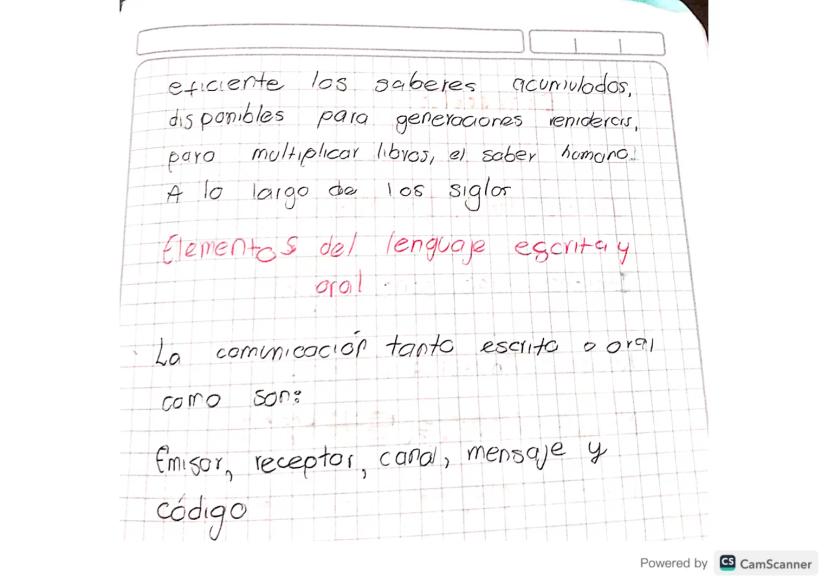 eficiente los saberes acumulados,
disponibles para generaciones venideras,
para multiplicar libros, el saber humano.
A lo largo de los siglos
Elementos del lenguaje escrita y
oral
La comunicación tanto escrita o oral
como son:
Emisor, receptor, canal, mensaje y
código
Powered by CS CamScanner